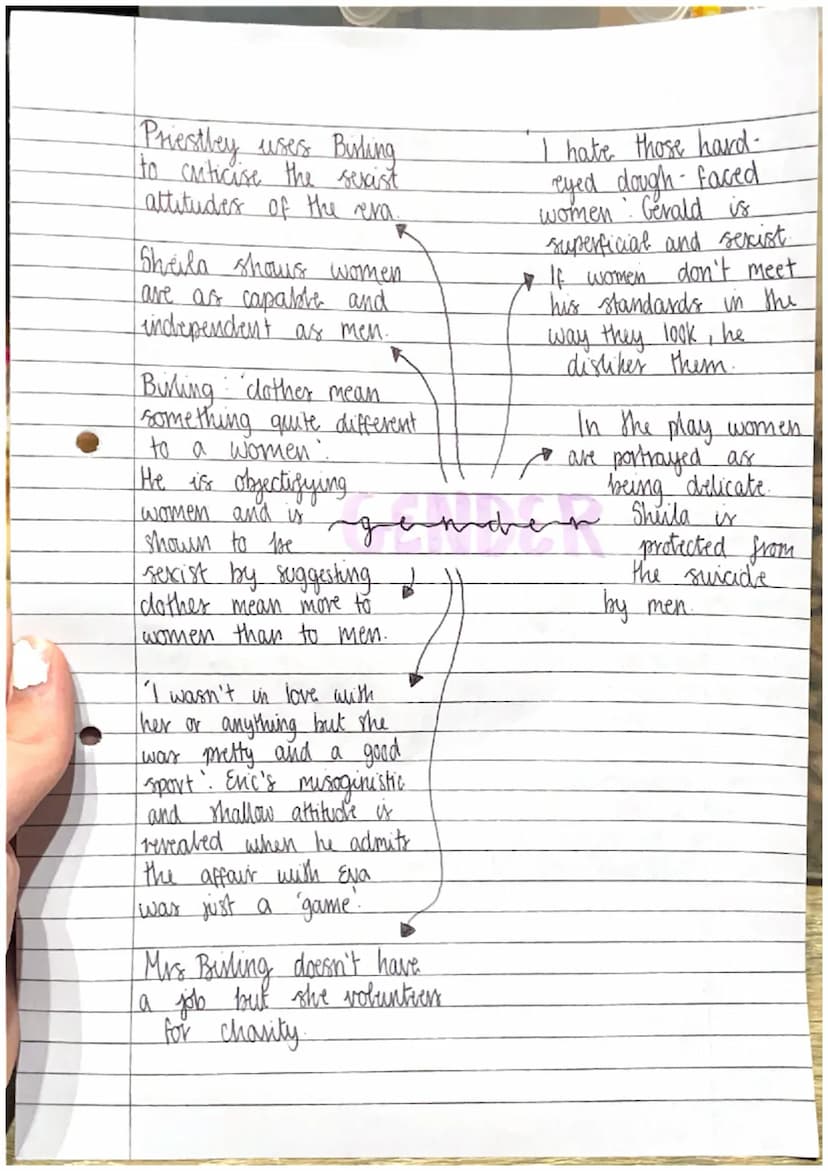 Priestley uses Birling
to criticise the sexist
attitudes of the era.
Sheila shows women
are as capable and
independent as men.
Birling: 'clothes mean
something quite different
to a women'.
He is objectifying
women and is
shown to be
sexist by suggesting
clothes mean more to
women than to men.
'I wasn't in love with
her or anything but she
was pretty and a good
sport'. Eric's misoginistic
and shallow attitude is
revealed when he admits
the affair with Eva
was just a 'game'.
Mrs Birling doesn't have
a job but she volunteers
for charity.
GENDER
gender
'I hate those hard-
eyed dough-faced
women'. Gerald is
superficial and sexist.
If women don't meet
his standards in the
way they look, he
dislikes them.
In the play women
are portrayed as
being delicate.
Sheila is
protected from
the suicide
by men.